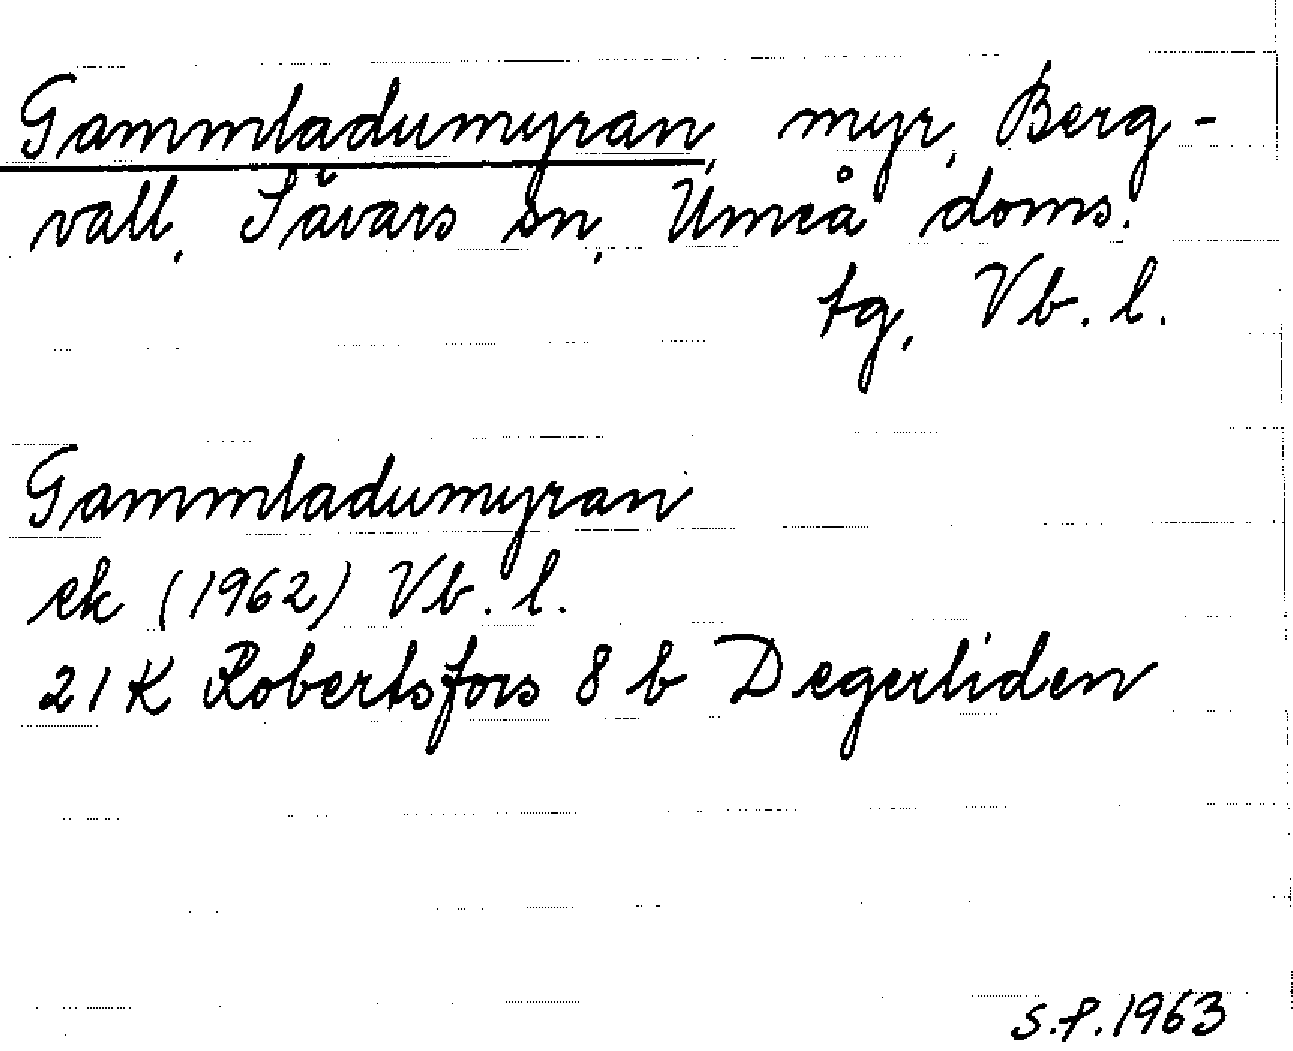 Gammladumyran, myr, Berg-
vall, Sävars sn, Umeå doms.
tg, Vb. l.
Gammladumyran
ek (1962) Vb. l.
21K Robertsfors 8 b Degerliden
S.F. 1963